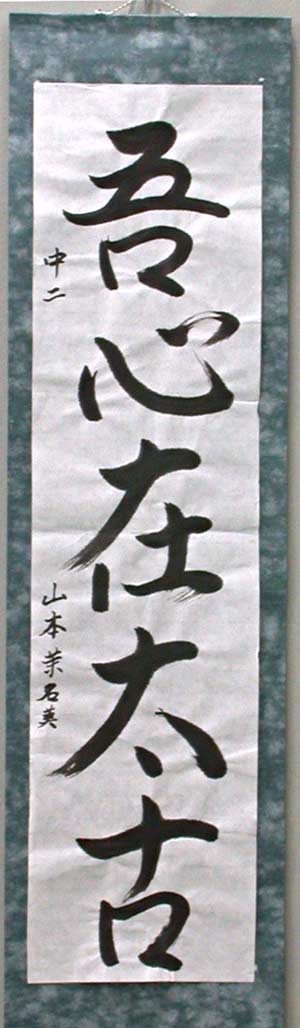 吾心在太古
中二
山本茉名美